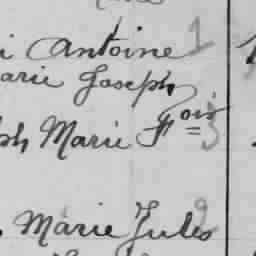 i Antoine 1
arie Joseph
ph Marie Fois 3
Marie Jules 9